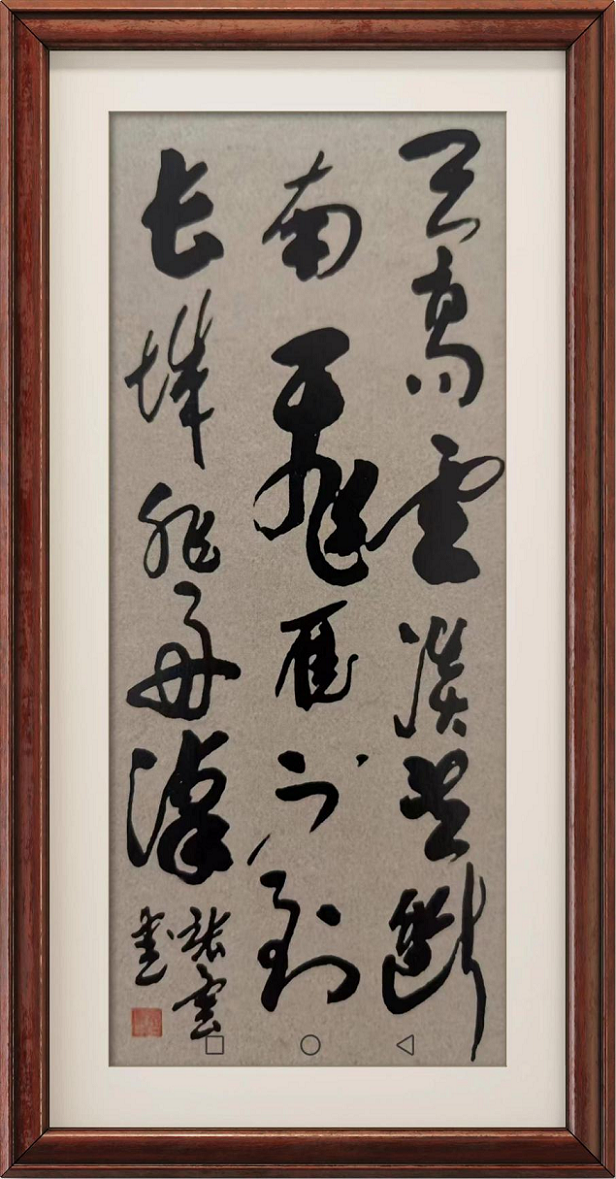 天高雲淡望斷
南飛雁不到
长城非好漢
書